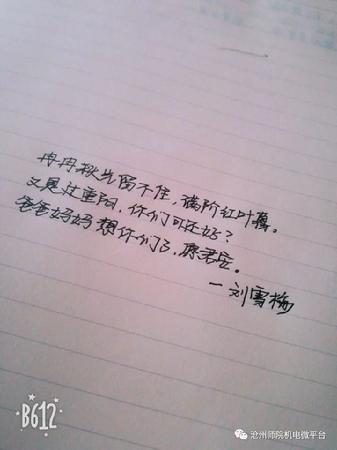 冉冉秋光留不住，满阶红叶暮。
又是过重阳，你们可还好？
爸爸妈妈想你们了，愿君安。
—刘雪梅
B612
沧州师院机电微平台